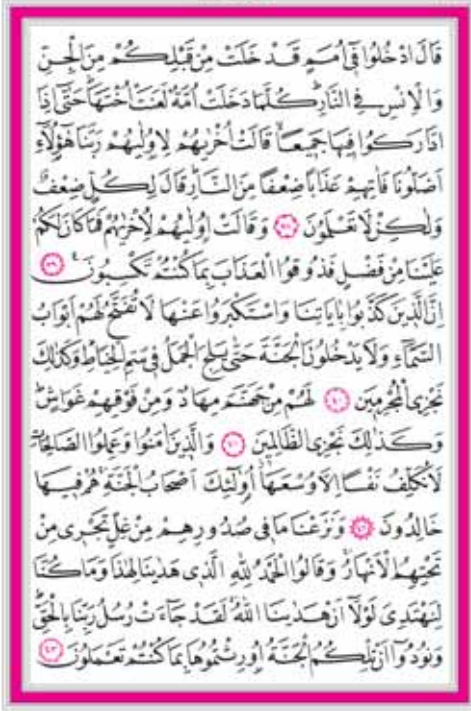 قَالَ ادْخُلُوا فِي أُمَمٍ قَدْ خَلَتْ مِنْ قَبْلِكُمْ مِنَ الْجِنِّ
وَالْاِنْسِ فِي النَّارِ كُلَّمَا دَخَلَتْ اُمَّةٌ لَعَنَتْ اُخْتَهَا حَتَّى اِذَا
ادَّارَكُوا فِيهَا جَمِيعًا قَالَتْ اُخْرٰيهُمْ لِاُولٰيهُمْ رَبَّنَا هٰٓؤُلَٓاءِ
اَضَلُّونَا فَاٰتِهِمْ عَذَابًا ضِعْفًا مِنَ النَّارِ قَالَ لِكُلٍّ ضِعْفٌ
وَلٰكِنْ لَا تَعْلَمُونَ ٣٨ وَقَالَتْ اُولٰيهُمْ لِاُخْرٰيهُمْ فَمَا كَانَ لَكُمْ
عَلَيْنَا مِنْ فَضْلٍ فَذُوقُوا الْعَذَابَ بِمَا كُنْتُمْ تَكْسِبُونَ ٣٩
اِنَّ الَّذِينَ كَذَّبُوا بِاٰيَاتِنَا وَاسْتَكْبَرُوا عَنْهَا لَا تُفَتَّحُ لَهُمْ اَبْوَابُ
السَّمَٓاءِ وَلَا يَدْخُلُونَ الْجَنَّةَ حَتّٰى يَلِجَ الْجَمَلُ فِي سَمِّ الْخِيَاطِ وَكَذٰلِكَ
نَجْزِي الْمُجْرِمِينَ ٤٠ لَهُمْ مِنْ جَهَنَّمَ مِهَادٌ وَمِنْ فَوْقِهِمْ غَوَاشٍ
وَكَذٰلِكَ نَجْزِي الظَّالِمِينَ ٤١ وَالَّذِينَ اٰمَنُوا وَعَمِلُوا الصَّالِحَاتِ
لَا نُكَلِّفُ نَفْسًا اِلَّا وُسْعَهَا اُولٰٓئِكَ اَصْحَابُ الْجَنَّةِ هُمْ فِيهَا
خَالِدُونَ ٤٢ وَنَزَعْنَا مَا فِي صُدُورِهِمْ مِنْ غِلٍّ تَجْرِي مِنْ
تَحْتِهِمُ الْاَنْهَارُ وَقَالُوا الْحَمْدُ لِلّٰهِ الَّذِي هَدٰينَا لِهٰذَا وَمَا كُنَّا
لِنَهْتَدِيَ لَوْلَٓا اَنْ هَدٰينَا اللّٰهُ لَقَدْ جَٓاءَتْ رُسُلُ رَبِّنَا بِالْحَقِّ
وَنُودُٓوا اَنْ تِلْكُمُ الْجَنَّةُ اُورِثْتُمُوهَا بِمَا كُنْتُمْ تَعْمَلُونَ ٤٣